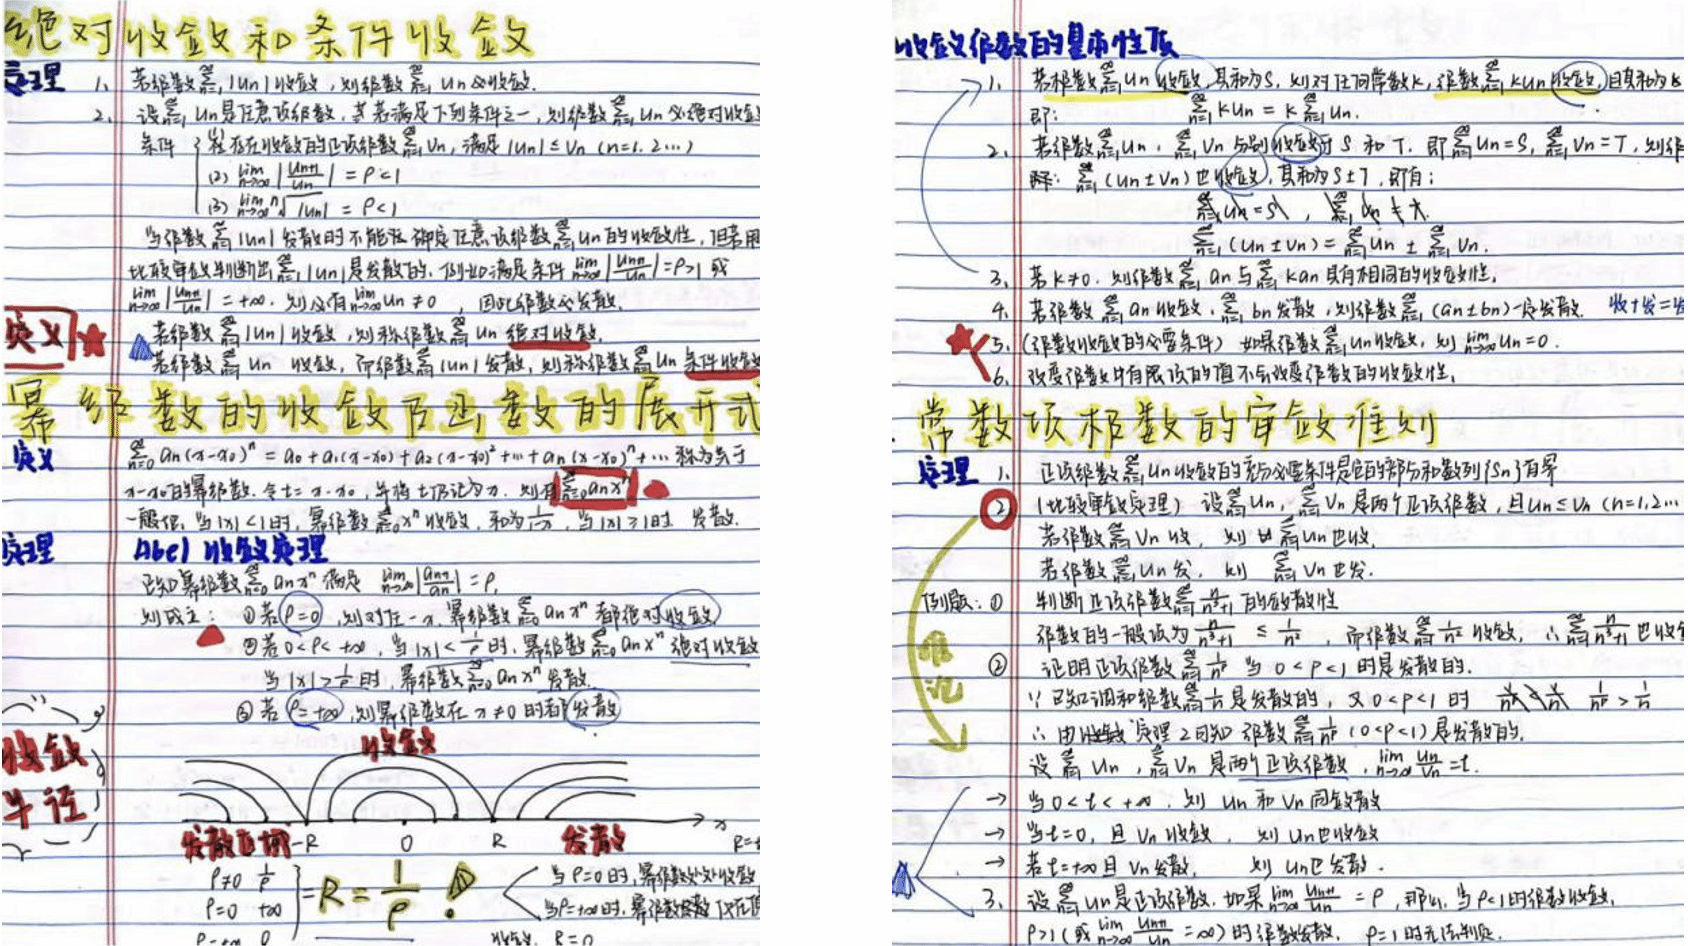 绝对收敛和条件收敛
定理 1. 若级数∑_{n=1}^∞ |un| 收敛，则级数∑_{n=1}^∞ un 必收敛.
2. 设∑_{n=1}^∞ un 是任意项级数，其若满足下列条件之一，则级数∑_{n=1}^∞ un 必绝对收敛
条件 (1) 存在收敛的正项级数∑_{n=1}^∞ vn，满足 |un| ≤ vn (n=1,2…)
(2) lim_{n→∞} |u_{n+1}/un| = ρ<1
(3) lim_{n→∞} ⁿ√|un| = ρ<1
当级数∑_{n=1}^∞ |un| 发散时不能 确定任意项级数∑_{n=1}^∞ un 的收敛性，但若用
比较审敛判断出∑_{n=1}^∞ |un| 是发散的，例如满足条件 lim_{n→∞} |u_{n+1}/un| = ρ>1 或
lim_{n→∞} |u_{n+1}/un| = +∞. 则必有 lim_{n→∞} un ≠ 0，因此级数必发散.
定义 若级数∑_{n=1}^∞ |un| 收敛，则称级数∑_{n=1}^∞ un 绝对收敛.
若级数∑_{n=1}^∞ un 收敛，而级数∑_{n=1}^∞ |un| 发散，则称级数∑_{n=1}^∞ un 条件收敛
幂级数的收敛及函数的展开式
定义 ∑_{n=0}^∞ an(x-x0)^n = a0 + a1(x-x0) + a2(x-x0)² + … + an(x-x0)^n + … 称为关于
x-x0 的幂级数. 令 t = x-x0，并将 t 仍记为 x. 则有 ∑_{n=0}^∞ an x^n
一般但，当 |x|<1 时，幂级数∑_{n=0}^∞ x^n 收敛，和为 1/(1-x)，当 |x|≥1 时 发散.
定理 Abel 收敛定理
已知幂级数∑_{n=0}^∞ an x^n 满足 lim_{n→∞} |a_{n+1}/an| = ρ,
则成立: ①若 ρ=0，则对任一 x，幂级数∑_{n=0}^∞ an x^n 都绝对收敛
②若 0<ρ<+∞，当 |x|<1/ρ 时，幂级数∑_{n=0}^∞ an x^n 绝对收敛
当 |x|>1/ρ 时，幂级数∑_{n=0}^∞ an x^n 发散.
③若 ρ=+∞，则幂级数在 x≠0 的时都发散
收敛
半径
收敛
发散区域 -R 0 R 发散 x
R=
ρ≠0 1/ρ
ρ=0 +∞
ρ=+∞ 0
= R = 1/ρ !
当 ρ=0 时，幂级数处处收敛
当 ρ=+∞ 时，幂级数
收敛，R=0
收敛级数的基本性质
1. 若级数∑_{n=1}^∞ un 收敛，其和为 S，则对任何常数 k，级数∑_{n=1}^∞ kun 收敛，且其和为 k
即: ∑_{n=1}^∞ kun = k∑_{n=1}^∞ un.
2. 若级数∑_{n=1}^∞ un，∑_{n=1}^∞ vn 分别收敛于 S 和 T，即∑_{n=1}^∞ un = S，∑_{n=1}^∞ vn = T，则级
: ∑_{n=1}^∞ (un ± vn) 也收敛，其和为 S±T，即有:
∑_{n=1}^∞ (un ± vn) = ∑_{n=1}^∞ un ± ∑_{n=1}^∞ vn.
3. 若 k≠0，则级数∑_{n=1}^∞ an 与∑_{n=1}^∞ kan 具有相同的收敛性.
4. 若级数∑_{n=1}^∞ an 收敛，∑_{n=1}^∞ bn 发散，则级数∑_{n=1}^∞ (an ± bn) 一定发散. 收+发=发
5. (级数收敛的必要条件) 如果级数∑_{n=1}^∞ un 收敛，则 lim_{n→∞} un = 0.
6. 改变级数中有限项的值不会改变级数的收敛性.
常数项级数的审敛准则
定理 1. 正项级数∑_{n=1}^∞ un 收敛的充分必要条件是它的部分和数列{Sn}有界
② (比较审敛定理) 设∑_{n=1}^∞ un，∑_{n=1}^∞ vn 是两个正项级数，且 un ≤ vn (n=1,2…
若级数∑_{n=1}^∞ vn 收，则∑_{n=1}^∞ un 也收.
若级数∑_{n=1}^∞ un 发，则 ∑_{n=1}^∞ vn 也发.
例题: ① 判断正项级数∑_{n=1}^∞ n/(n³+1) 的敛散性
级数的一般项为 n/(n³+1) ≤ 1/n²，而级数∑_{n=1}^∞ 1/n² 收敛，∴∑_{n=1}^∞ n/(n³+1) 也收敛
② 证明正项级数∑_{n=1}^∞ 1/n^p 当 0<p<1 时是发散的.
∵ 已知调和级数∑_{n=1}^∞ 1/n 是发散的，又 0<p<1 时 1/n^p > 1/n
∴ 由 定理2可知 级数∑_{n=1}^∞ 1/n^p (0<p<1) 是发散的.
设∑_{n=1}^∞ un，∑_{n=1}^∞ vn 是两个正项级数，lim_{n→∞} un/vn = t.
→ 当 0<t<+∞，则 un 和 vn 同敛散
→ 当 t=0，且 vn 收敛，则 un 也收敛
→ 若 t=+∞ 且 vn 发散，则 un 也发散.
3. 设∑_{n=1}^∞ un 是正项级数，如果 lim_{n→∞} u_{n+1}/un = ρ，那么，当 ρ<1 时级数收敛，
ρ>1 (或 lim_{n→∞} u_{n+1}/un = ∞) 时级数发散，ρ=1 时无法判定.